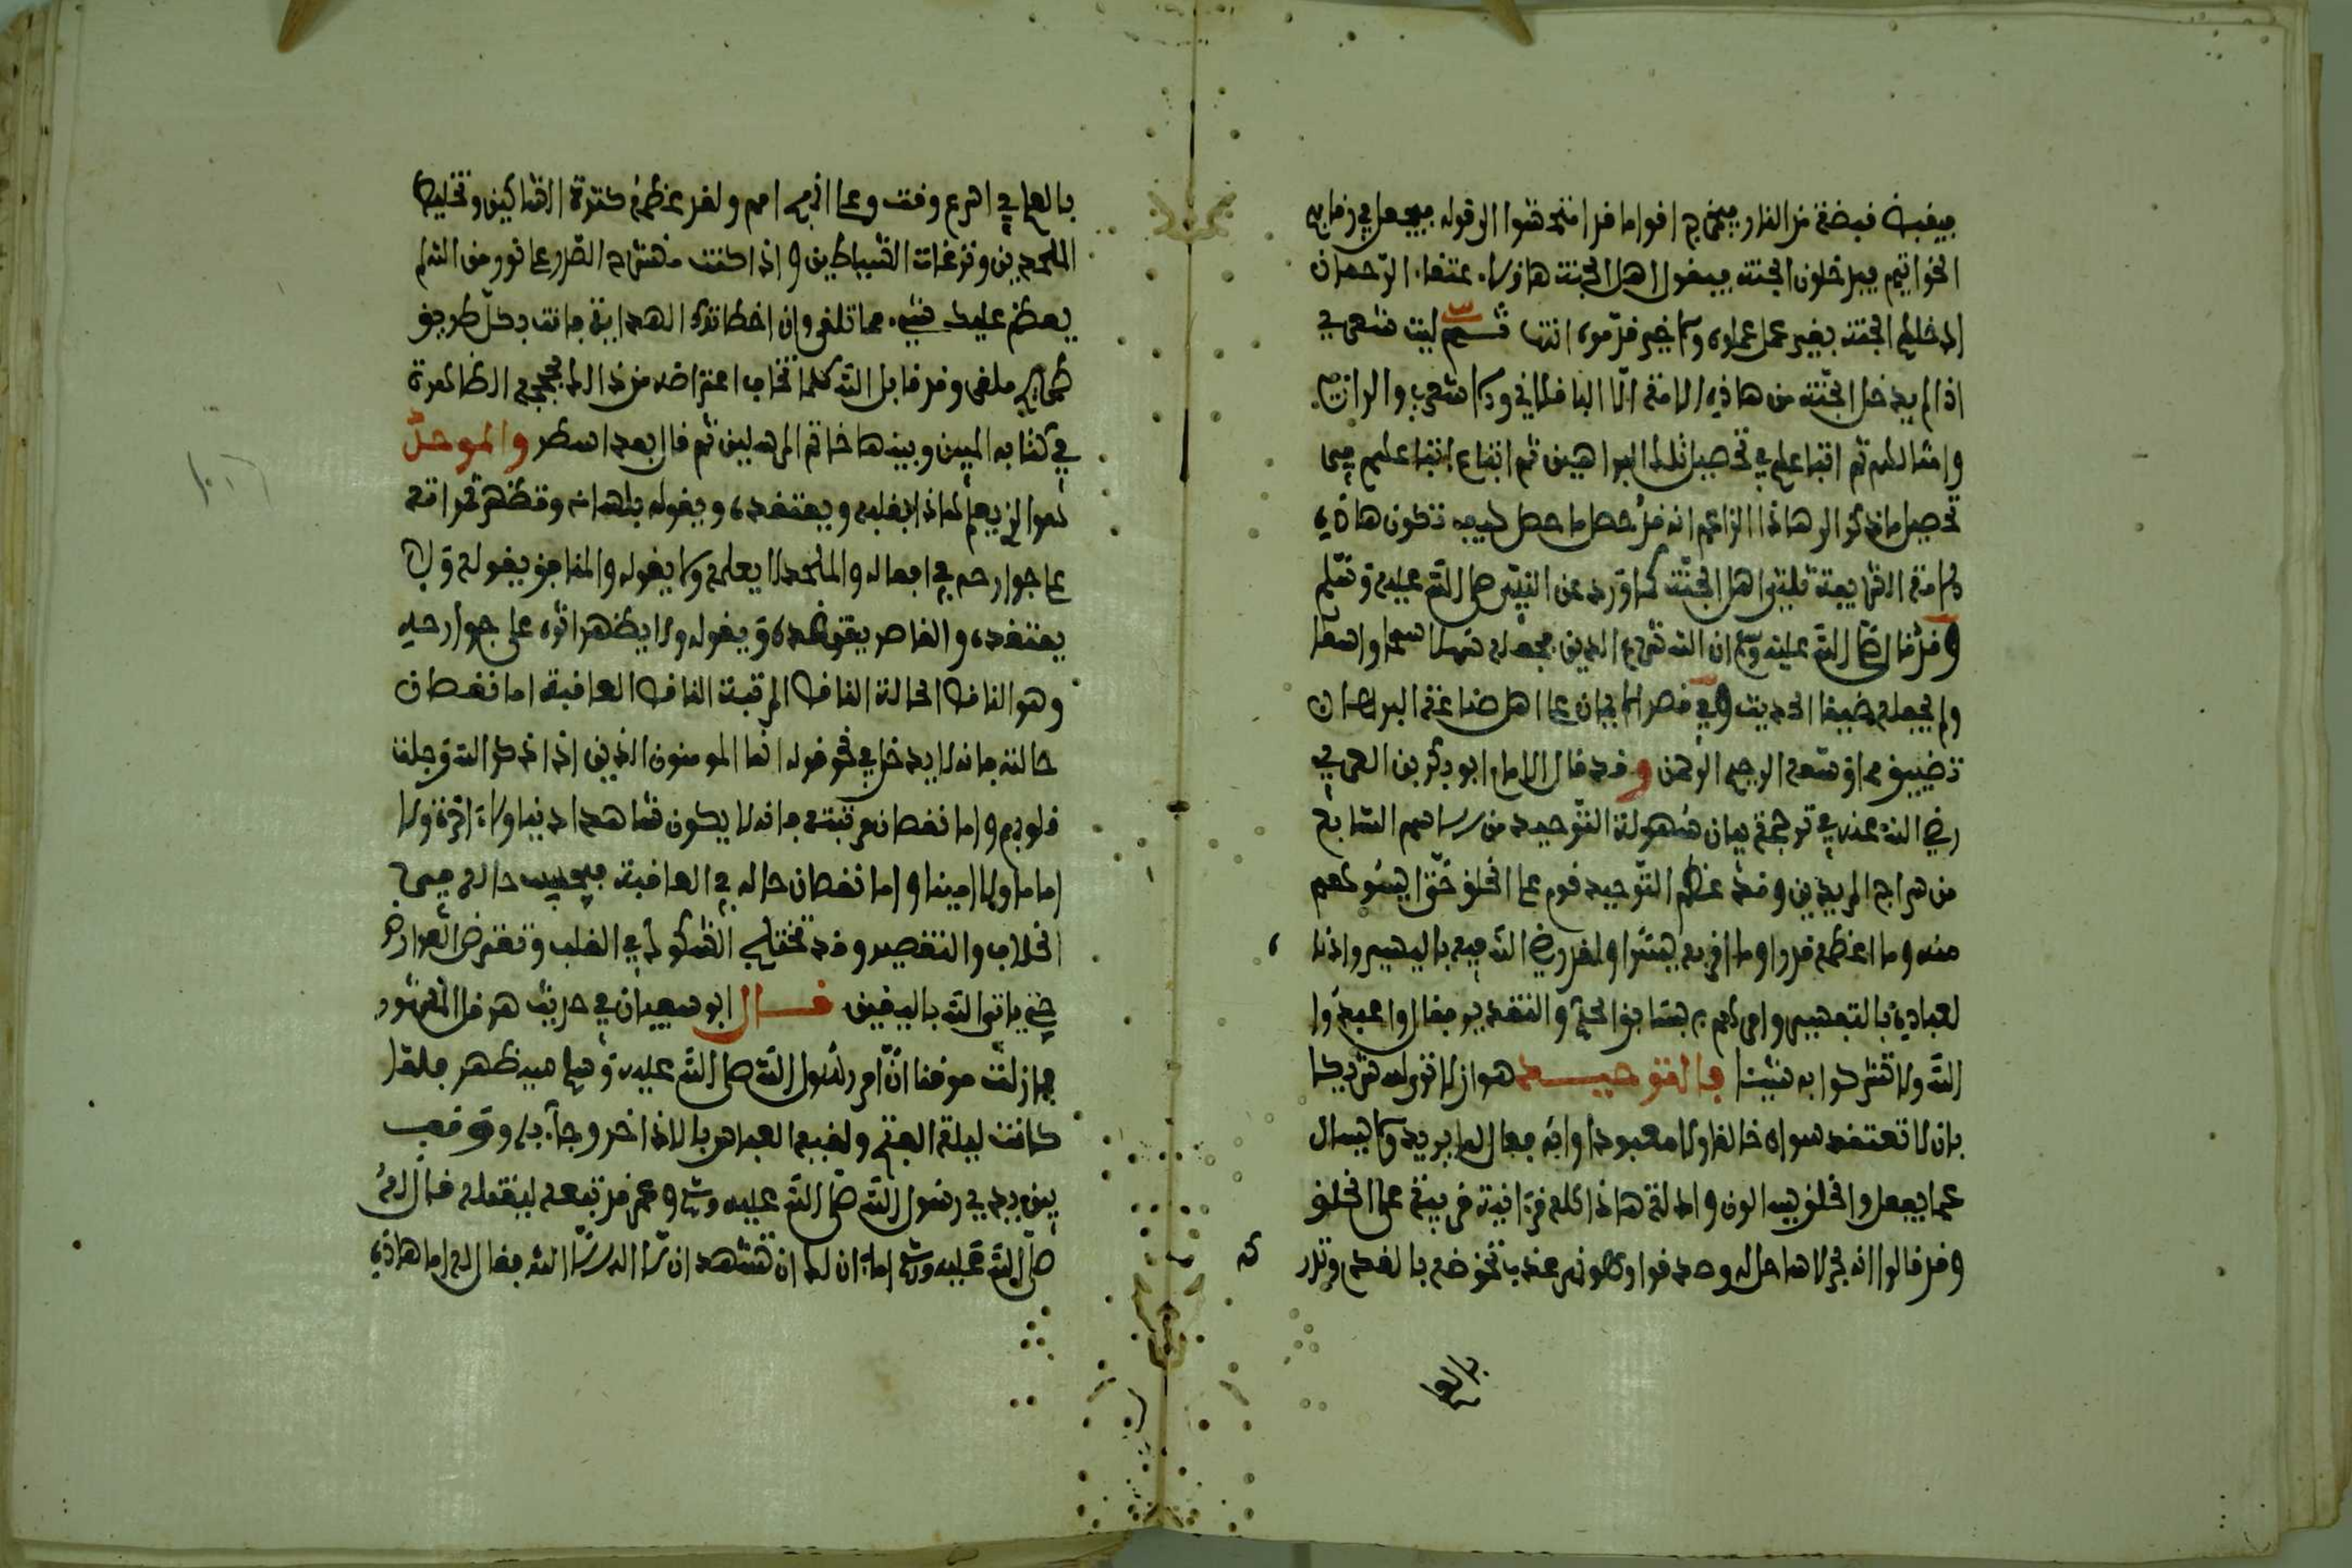 فيقبض قبضة من النار فيخرج اقواما قد امتحشوا الى قوله فيجعل في رقابهم
الخواتيم فيدخلون الجنة فيقول اهل الجنة هاؤلاء عتقاء الرحمان
ادخلهم الجنة بغير عمل عملوه ولا خير قدموه انتهى ليت شعري
اذا لم يدخل الجنة من هاذه الامة الا الباقلاني
وامثالهم ثم اتباعهم في تحصيل تلك البراهين ثم اتباع اتباعهم في
تحصيل ما ذكر الى هاذا الزاعم انه قد حصل ما حصل كيف تكون هاذه
الامة الشريفة ثلثي اهل الجنة كما ورد عن النبي صلى الله عليه وسلم
وقد قال صلى الله عليه وسلم ان الله شرع الدين فجعله سهلا سمحا واسعا
ولم يجعله ضيقا الحديث وفي قصر الايمان على اهل صناعة البرهان
تضييق لما وسعه الرحيم الرحمن وقد قال الامام ابو بكر بن العربي
رضي الله عنه في ترجمة بيان سهولة التوحيد من
من سراج المريدين وقد عظم التوحيد قوم على الخلق حتى ايسوهم
منه وما اعظمه قدرا وما اقربه يسرا ولقد رضي الله فيه باليسير واذن
لعباده بالتعبير وامرهم بسابق الحكم والتقدير فقال واعبدوا
الله ولا تشركوا به شيئا فالتوحيد هو ان لا ترى له شريكا
بان لا تعتقد سواه خالقا ولا معبودا وانه فعال لما يريد ولا يسال
عما يفعل والخلق يسالون وادلة هاذا كله قرانية قريبة على الخلق
وقد قالوا انه بحر لا ساحل له وصدقوا ولكونه عذب تخوضه بالقدم وترد
بالعا
بالعا في اسرع وقت وعلى اقرب امم ولقد عظمه كثرة الشاكين وتخليط
الملحدين ونزغات الشياطين واذا كنت منشرح الصدر على نور من الله لم
يعظم عليك شيء مما تلقى وان اخطاتك الهداية فانت بكل طريق
ملقى وقد قابل الله كلما تخاف اعتراضه من ذالك بحججه الظاهرة
في كتابه المبين وبينها خاتم المرسلين ثم قال بعد اسطر والموحد
هو الذي يعلم هاذا بقلبه ويعتقده ويقوله بلسانه وتظهر ثمراته
على جوارحه في افعاله والملحد لا يعلمه ولا يقوله والمنافق يقوله ولا
يعتقده والقاصر يعتقده ويقوله ولا يظهر اثره على جوارحه
وهو الناقص الحالة الناقص المرتبة الناقص العاقبة اما نقصان
حالته فانه لا يدخل في نحو قوله انما المومنون الذين اذا ذكر الله وجلت
قلوبهم واما نقصان مرتبته فانه لا يكون شاهدا دنيا ولا اخرة ولا
اماما ولا امينا واما نقصان حاله في العاقبة حاله في
الخلاف والتقصير وقد تختلج الشكوك في القلب وتعترض العوارض
حتى ياتي الله باليقين قال ابو سفيان في حديث هرقل المشهور
فما زلت موقنا ان امر رسول الله صلى الله عليه وسلم سيظهر فلما
كانت ليلة الفتح ولقيه العباس بالاذاخر وجاء به ووقف
بين يدي رسول الله صلى الله عليه وسلم وعمر قد تبعه ليقتله قال له
صلى الله عليه وسلم اما ان لك ان تشهد ان لا اله الا الله فقال له اما هاذه